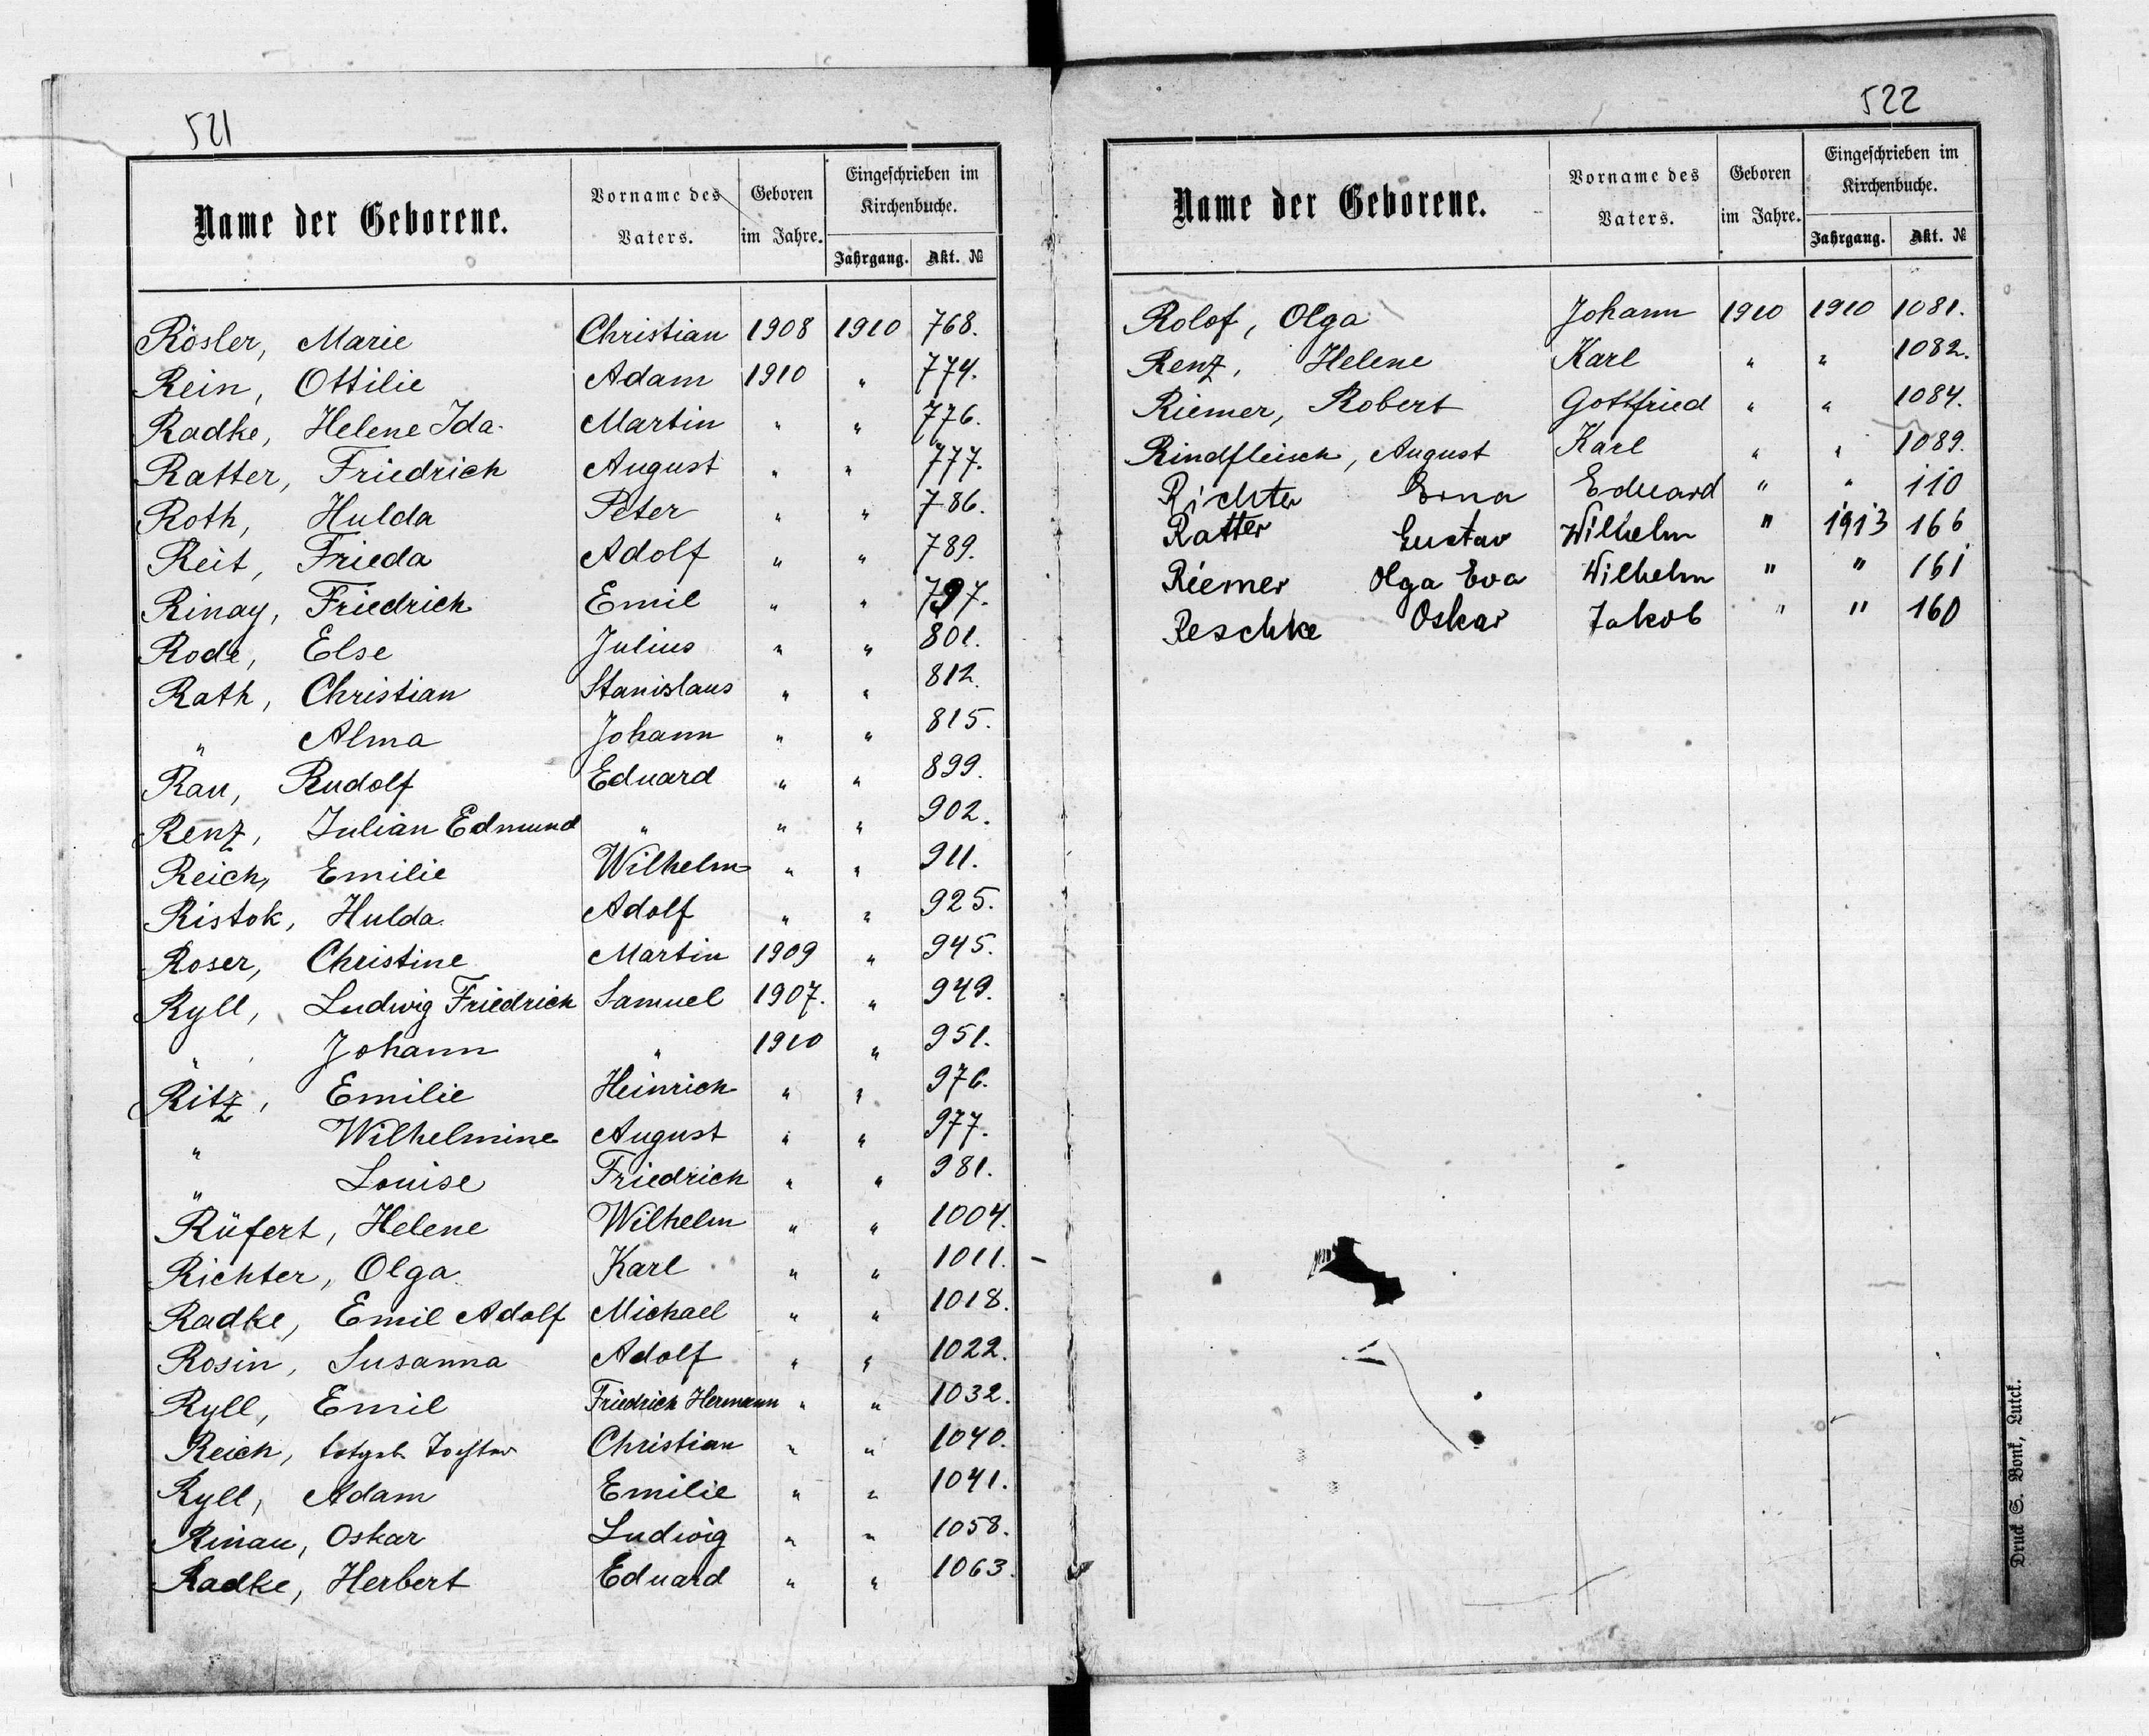 521
Name der Geborene. Vorname des Vaters. Geboren im Jahre. Eingeschrieben im Kirchenbuche. Jahrgang. Akt. №
Rösler, Marie Christian 1908 1910 768.
Rein, Ottilie Adam 1910 " 774.
Radke, Helene Ida Martin " " 776.
Ratter, Friedrich August " " 777.
Roth, Hulda Peter " " 786.
Reit, Frieda Adolf " " 789.
Rinay, Friedrich Emil " " 797.
Rode, Else Julius " " 801.
Rath, Christian Stanislaus " " 812.
" Alma Johann " " 815.
Rau, Rudolf Eduard " " 899.
Renz, Julian Edmund " " " 902.
Reich, Emilie Wilhelm " " 911.
Ristok, Hulda Adolf " " 925.
Roser, Christine Martin 1909 " 945.
Ryll, Ludwig Friedrich Samuel 1907. " 949.
" Johann " 1910 " 951.
Ritz, Emilie Heinrich " " 976.
" Wilhelmine August " " 977.
" Louise Friedrich " " 981.
Rüfert, Helene Wilhelm " " 1004.
Richter, Olga Karl " " 1011.
Radke, Emil Adolf Michael " " 1018.
Rosin, Susanna Adolf " " 1022.
Ryll, Emil Friedrich Hermann " " 1032.
Reich, totgeb Tochter Christian " " 1040.
Ryll, Adam Emilie " " 1041.
Rinau, Oskar Ludwig " " 1058.
Radke, Herbert Eduard " " 1063.
522
Name der Geborene. Vorname des Vaters. Geboren im Jahre. Eingeschrieben im Kirchenbuche. Jahrgang. Akt. №
Rolof, Olga Johann 1910 1910 1081.
Renz, Helene Karl " " 1082.
Riemer, Robert Gottfried " " 1084.
Rindfleisch, August Karl " " 1089.
Richter Erna Eduard " " 110
Ratter Gustav Wilhelm " 1913 166
Riemer Olga Eva Wilhelm " " 161
Reschke Oskar Jakob " " 160
Druck S. Bonk, Lutck.